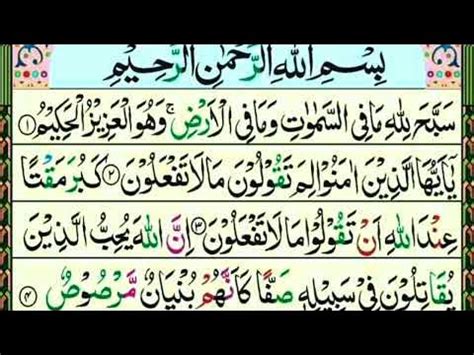 بِسْمِ اللّٰهِ الرَّحْمٰنِ الرَّحِيْمِ
سَبَّحَ لِلّٰهِ مَا فِى السَّمٰوٰتِ وَمَا فِى الْاَرْضِ ۚ وَهُوَ الْعَزِيْزُ الْحَكِيْمُ ۝۱
يٰۤاَيُّهَا الَّذِيْنَ اٰمَنُوْا لِمَ تَقُوْلُوْنَ مَا لَا تَفْعَلُوْنَ ۝۲ كَبُرَ مَقْتًا
عِنْدَ اللّٰهِ اَنْ تَقُوْلُوْا مَا لَا تَفْعَلُوْنَ ۝۳ اِنَّ اللّٰهَ يُحِبُّ الَّذِيْنَ
يُقَاتِلُوْنَ فِىْ سَبِيْلِهٖ صَفًّا كَاَنَّهُمْ بُنْيَانٌ مَّرْصُوْصٌ ۝۴